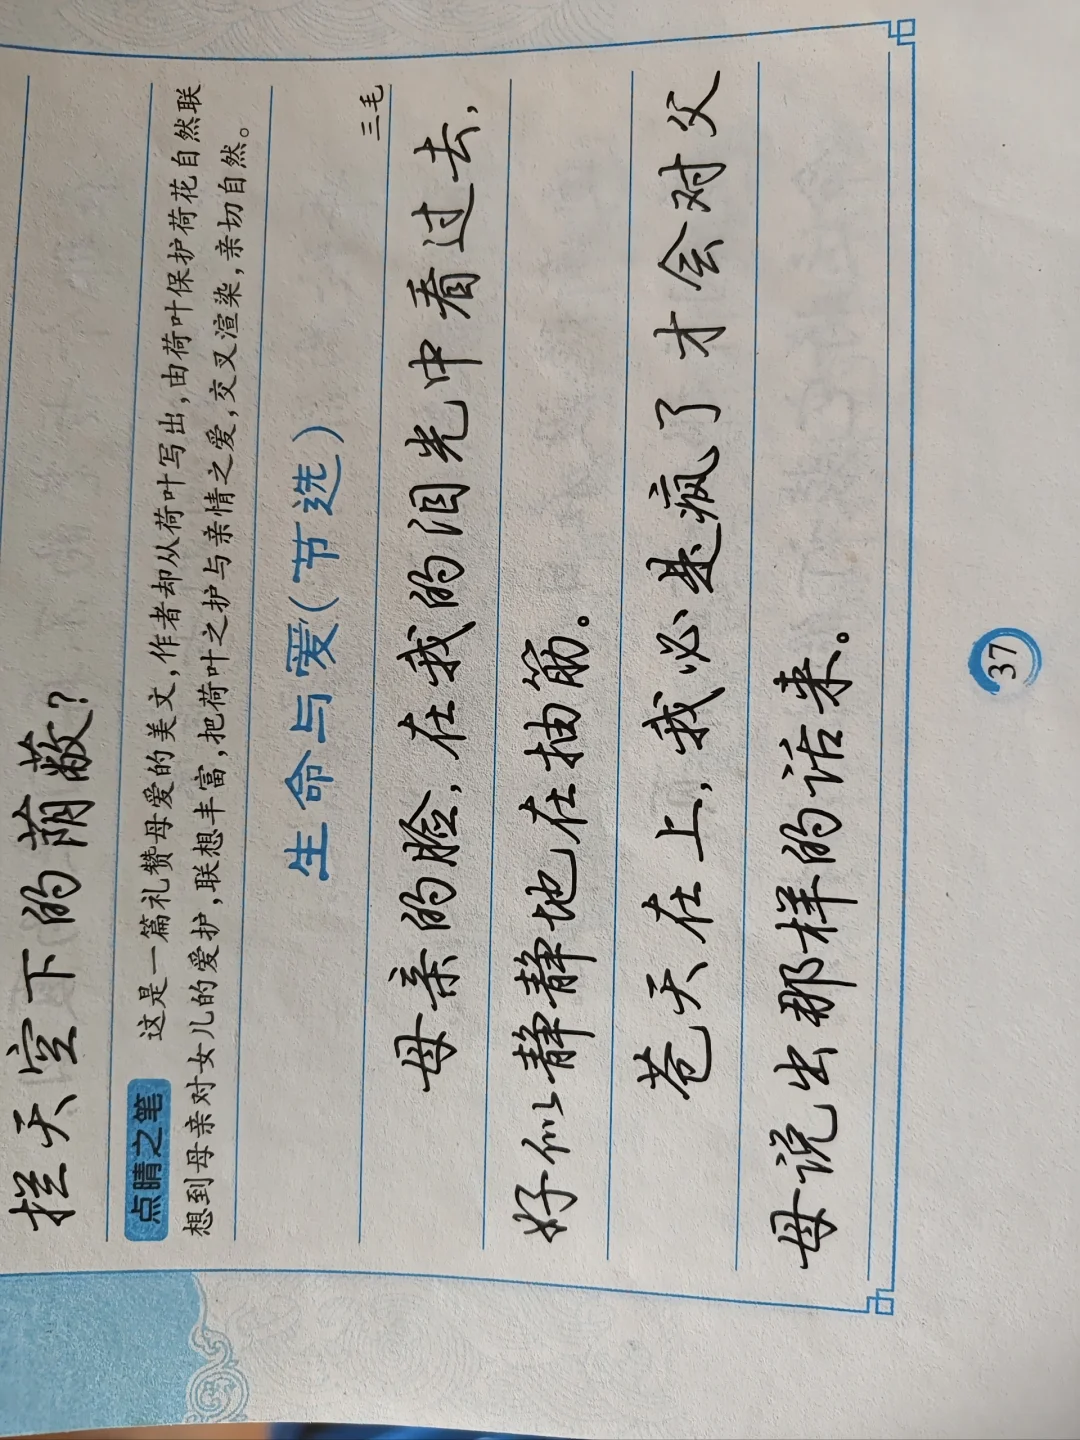 拦天空下的荫蔽？
点睛之笔 这是一篇礼赞母爱的美文，作者却从荷叶写出，由荷叶保护荷花自然联
想到母亲对女儿的爱护，联想丰富，把荷叶之护与亲情之爱，交叉渲染，亲切自然。
生命与爱（节选）
三毛
母亲的脸，在我的泪光中看过去，
好似静静地在抽筋。
苍天在上，我必是疯了才会对父
母说出那样的话来。
37